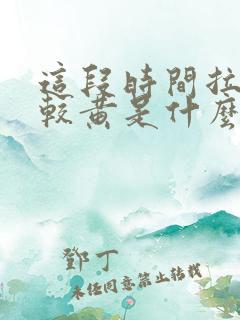 這段時間拉
較黃是什麼
鄧丁
未经同意禁止转载